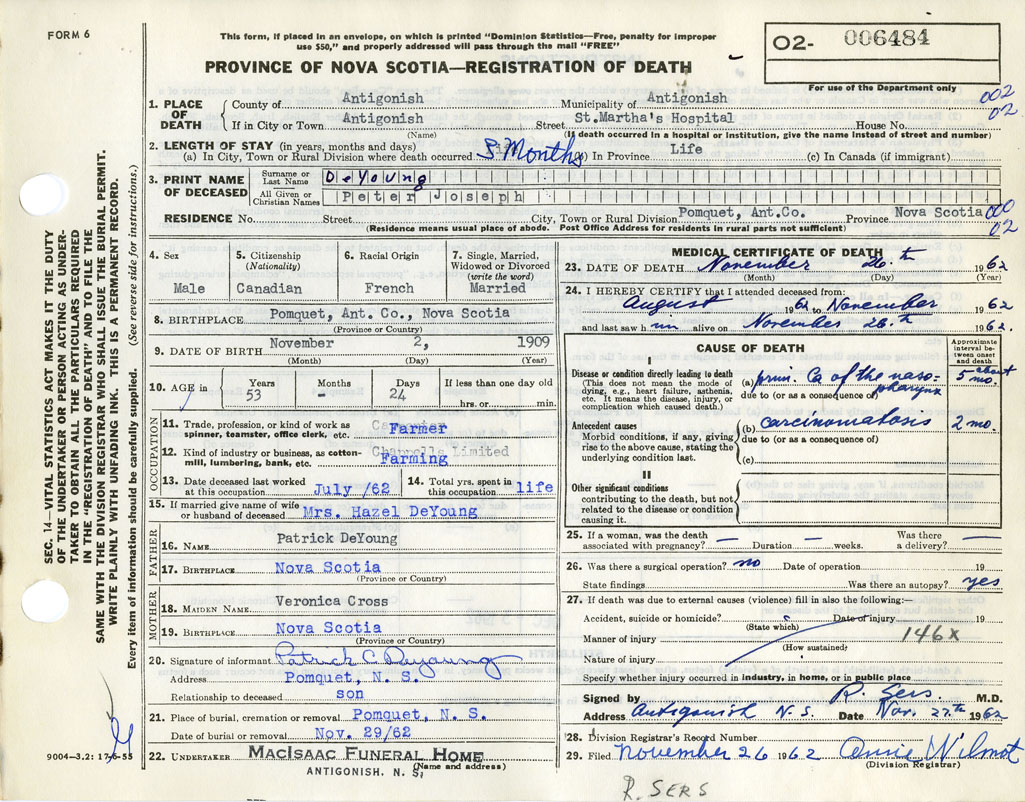 FORM 6
This form, if placed in an envelope, on which is printed "Dominion Statistics—Free, penalty for improper
use $50," and properly addressed will pass through the mail "FREE"
PROVINCE OF NOVA SCOTIA—REGISTRATION OF DEATH
O2- 006484
For use of the Department only
002
02
1. PLACE OF DEATH
County of Antigonish Municipality of Antigonish
If in City or Town Antigonish Street St.Martha's Hospital House No.
(Name) (If death occurred in a hospital or institution, give the name instead of street and number)
2. LENGTH OF STAY (in years, months and days)
(a) In City, Town or Rural Division where death occurred 3 Months (b) In Province Life (c) In Canada (if immigrant)
3. PRINT NAME OF DECEASED
Surname or Last Name DeYoung
All Given or Christian Names Peter Joseph
RESIDENCE No. Street City, Town or Rural Division Pomquet, Ant.Co. Province Nova Scotia
(Residence means usual place of abode. Post Office Address for residents in rural parts not sufficient)
000
02
4. Sex
Male
5. Citizenship (Nationality)
Canadian
6. Racial Origin
French
7. Single, Married, Widowed or Divorced (write the word)
Married
8. BIRTHPLACE Pomquet, Ant. Co., Nova Scotia
(Province or Country)
9. DATE OF BIRTH November 2, 1909
(Month) (Day) (Year)
10. AGE in Years 53 Months - Days 24 If less than one day old hrs. or min.
OCCUPATION
11. Trade, profession, or kind of work as spinner, teamster, office clerk, etc. Farmer
12. Kind of industry or business, as cotton-mill, lumbering, bank, etc. Farming
13. Date deceased last worked at this occupation July /62
14. Total yrs. spent in this occupation life
15. If married give name of wife or husband of deceased Mrs. Hazel DeYoung
FATHER
16. NAME Patrick DeYoung
17. BIRTHPLACE Nova Scotia
(Province or Country)
MOTHER
18. MAIDEN NAME Veronica Cross
19. BIRTHPLACE Nova Scotia
(Province or Country)
20. Signature of informant Patrick C Deyoung
Address Pomquet, N. S.
Relationship to deceased son
21. Place of burial, cremation or removal Pomquet, N. S.
Date of burial or removal Nov. 29/62
22. UNDERTAKER MACISAAC FUNERAL HOME
(Name and address)
ANTIGONISH. N. S.
MEDICAL CERTIFICATE OF DEATH
23. DATE OF DEATH November 26th 1962
(Month) (Day) (Year)
24. I HEREBY CERTIFY that I attended deceased from:
August 1962 to November 1962
and last saw him alive on November 26th 1962.
CAUSE OF DEATH
Approximate interval between onset and death
I
Disease or condition directly leading to death
(This does not mean the mode of dying, e.g., heart failure, asthenia, etc. It means the disease, injury, or complication which caused death.)
(a) prim. Ca of the naso-pharynx about 5 mo.
due to (or as a consequence of)
Antecedent causes
Morbid conditions, if any, giving rise to the above cause, stating the underlying condition last.
(b) carcinomatosis 2 mo.
due to (or as a consequence of)
(c)
II
Other significant conditions
contributing to the death, but not related to the disease or condition causing it.
25. If a woman, was the death associated with pregnancy? — Duration — weeks. Was there a delivery? —
26. Was there a surgical operation? no Date of operation 19
State findings Was there an autopsy? yes
27. If death was due to external causes (violence) fill in also the following:—
Accident, suicide or homicide? Date of injury 19
(State which)
146x
Manner of injury
(How sustained)
Nature of injury
Specify whether injury occurred in industry, in home, or in public place
Signed by R. Sers. M.D.
Address Antigonish N.S. Date Nov. 27th 1962
28. Division Registrar's Record Number
29. Filed November 26 1962 Annie Wilmot
(Division Registrar)
R. SERS
SEC. 14—VITAL STATISTICS ACT MAKES IT THE DUTY
OF THE UNDERTAKER OR PERSON ACTING AS UNDER-
TAKER TO OBTAIN ALL THE PARTICULARS REQUIRED
IN THE "REGISTRATION OF DEATH" AND TO FILE THE
SAME WITH THE DIVISION REGISTRAR WHO SHALL ISSUE THE BURIAL PERMIT.
WRITE PLAINLY WITH UNFADING INK. THIS IS A PERMANENT RECORD.
Every item of information should be carefully supplied. (See reverse side for instructions.)
9004-3.2: 17-6-55